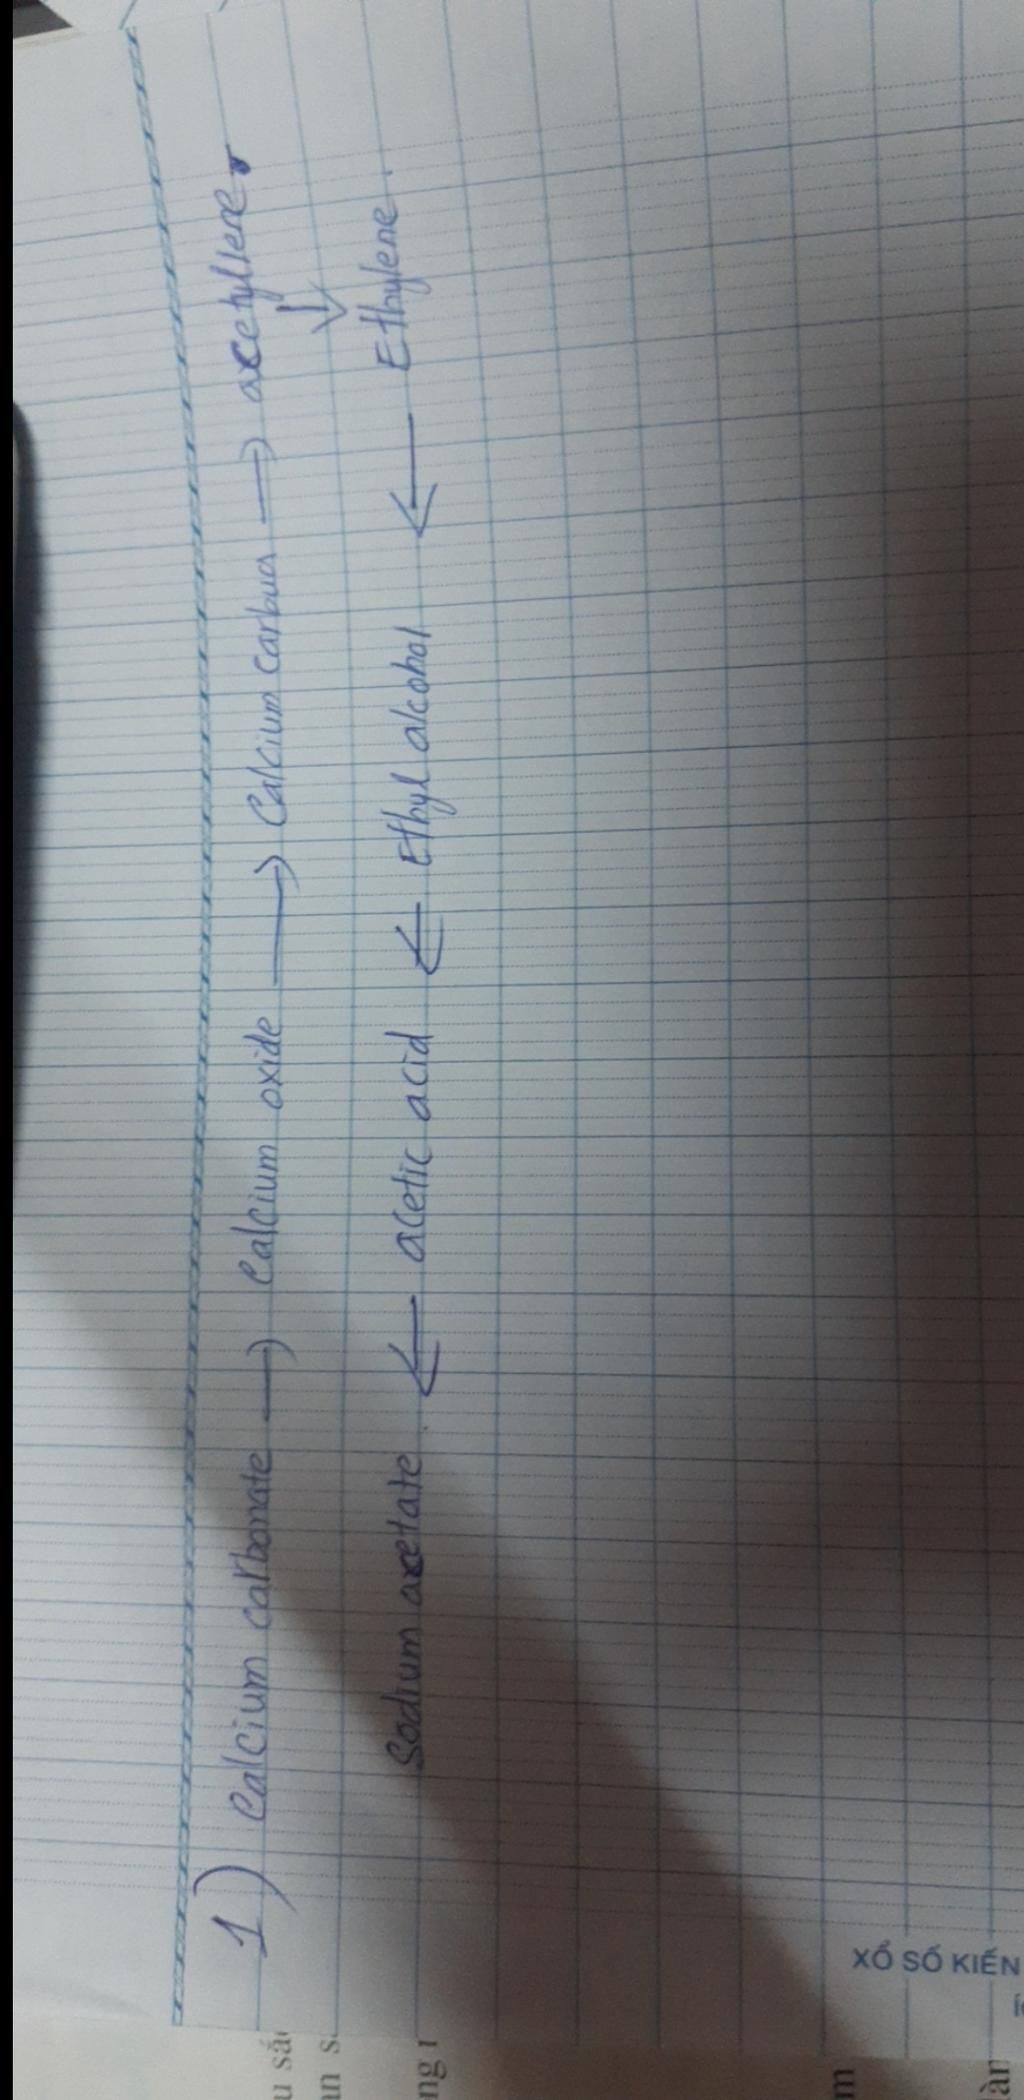 1) Calcium carbonate → Calcium oxide → Calcium carbua → acetyllene
↓
Sodium acetate ← acetic acid ← Ethyl alcohol ← Ethylene.
XỔ SỐ KIẾN
u sắ
an s
ng
m
àn